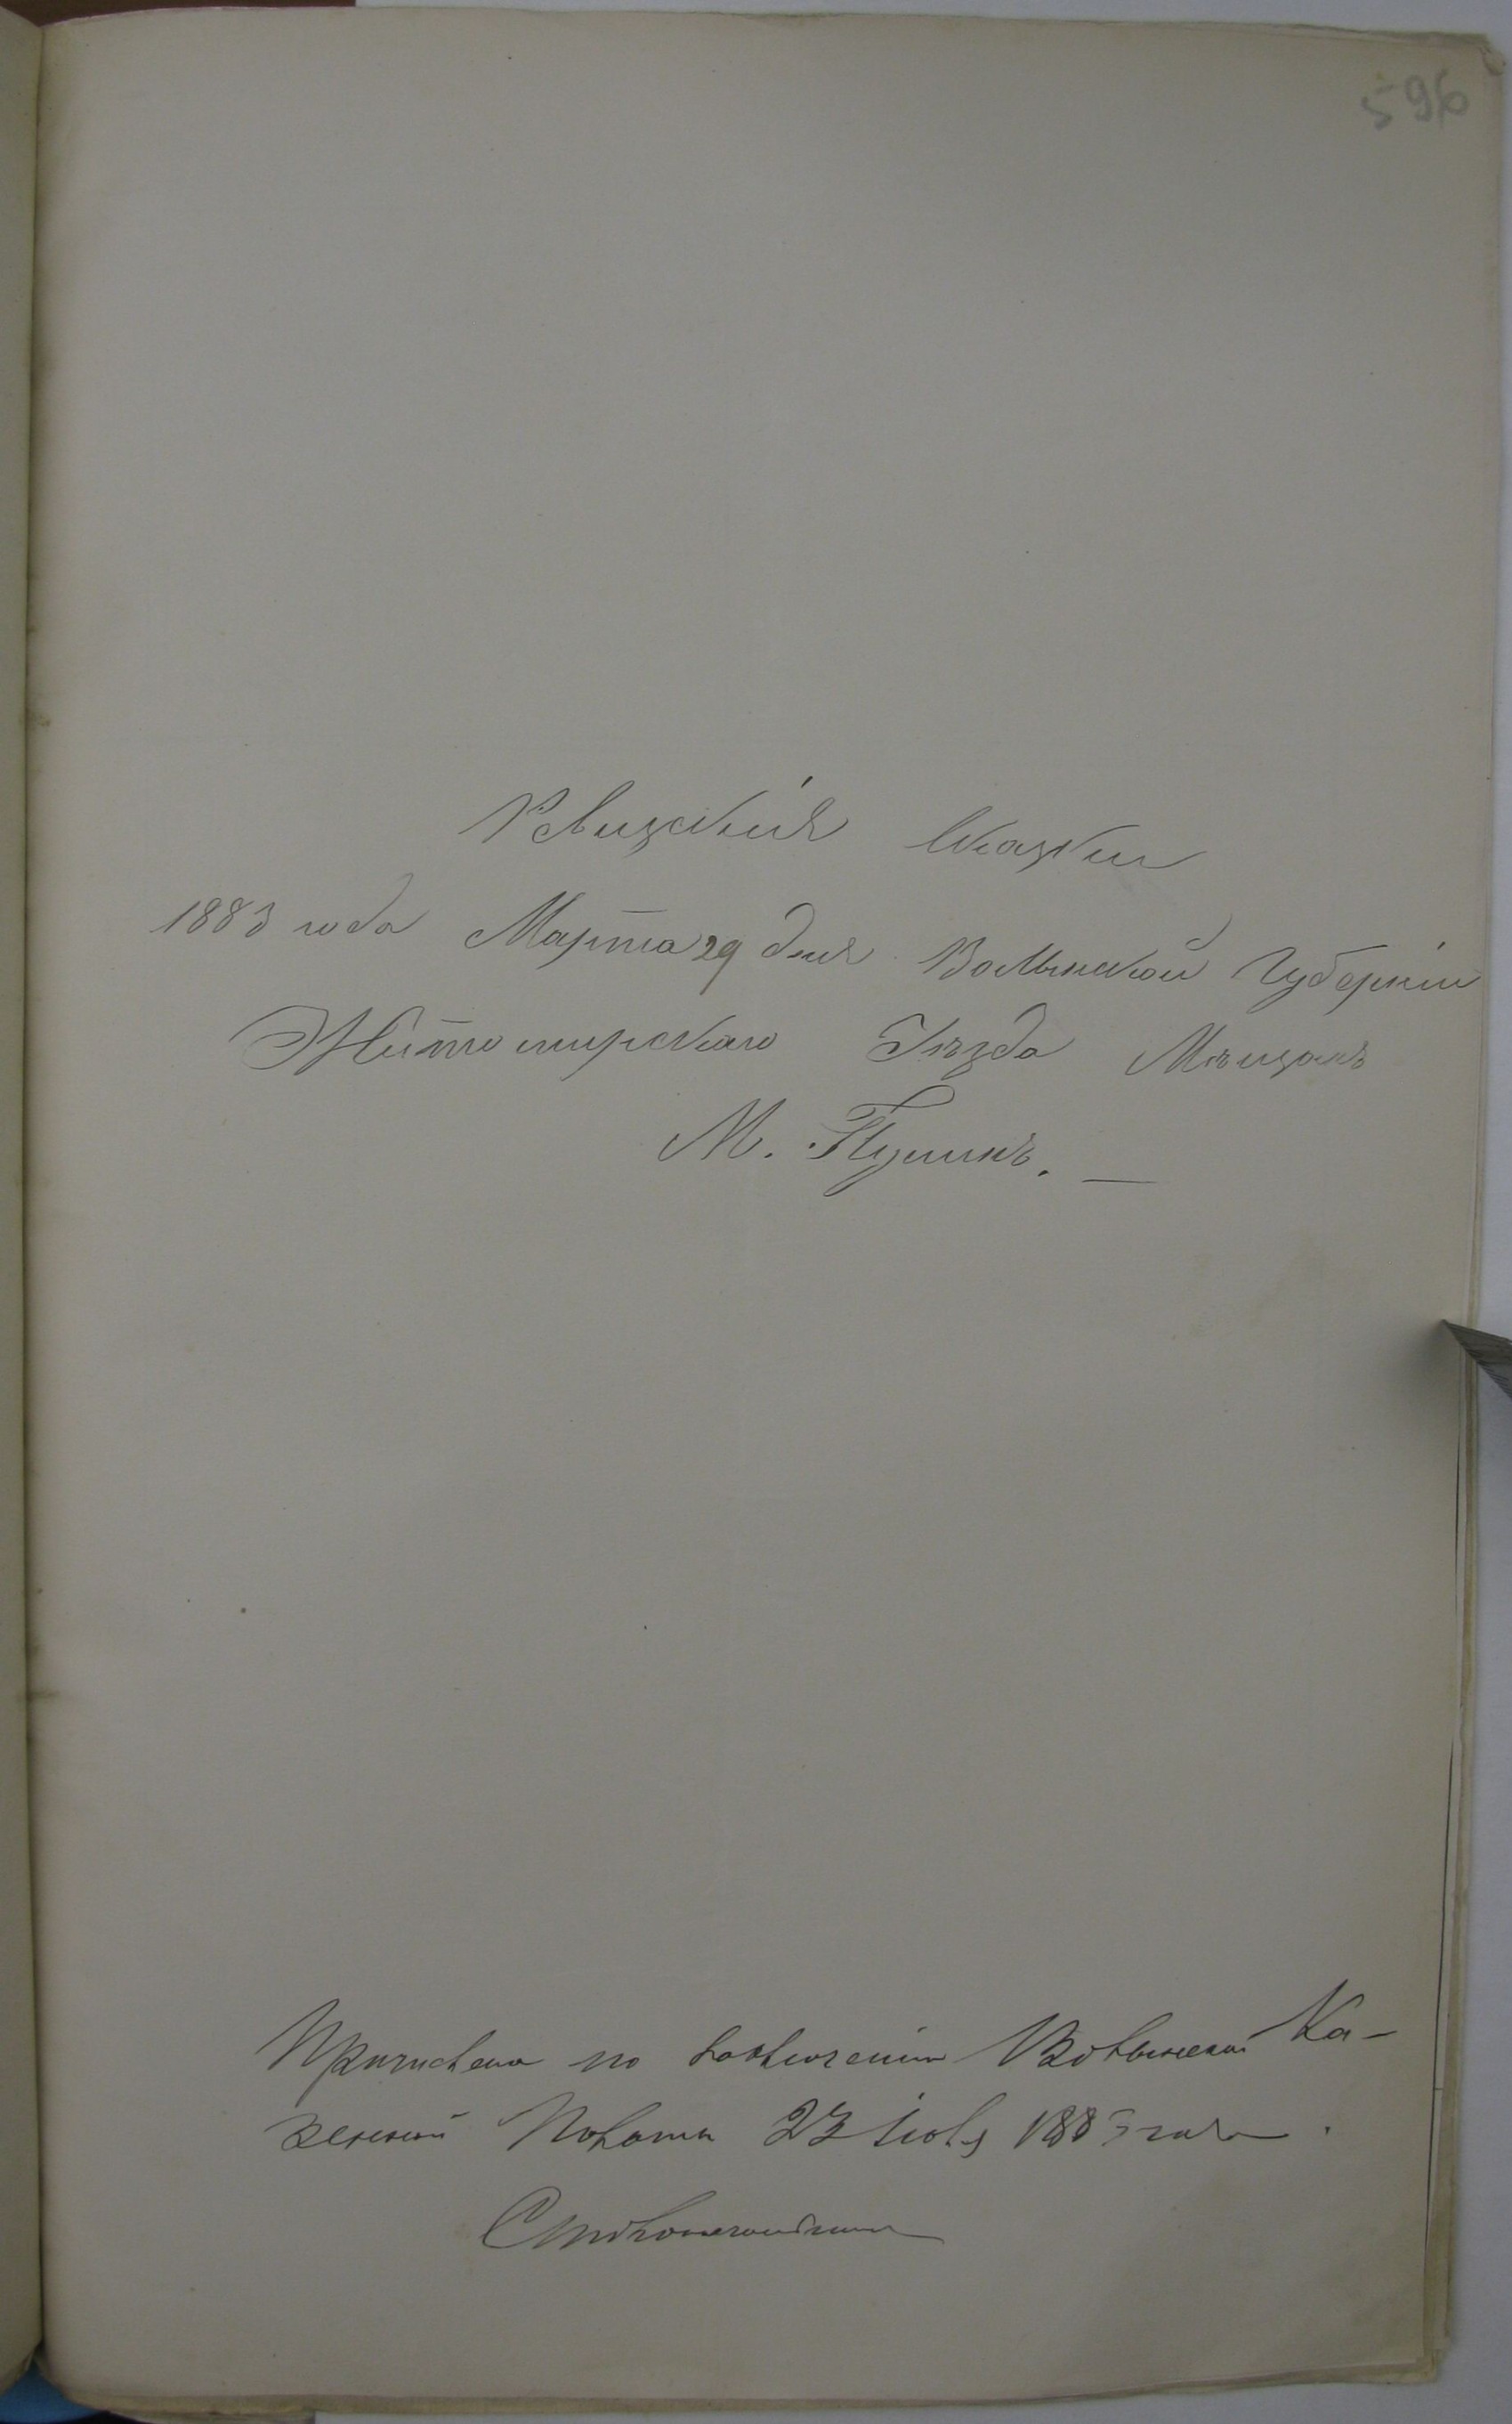 596
Ревизскія Сказки
1883 года Марта 29 дня Волынской Губерніи
Житомирскаго Уѣзда Мѣщанъ
М. Пулинъ. —
Причислены по Волынской Ка-
зенной Палаты 23 1883 года.
Столоначальникъ